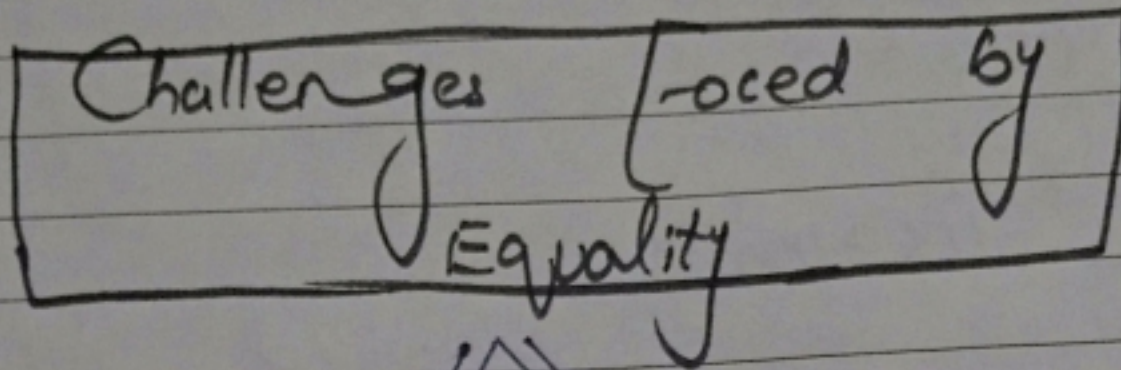 Challenges faced by
Equality